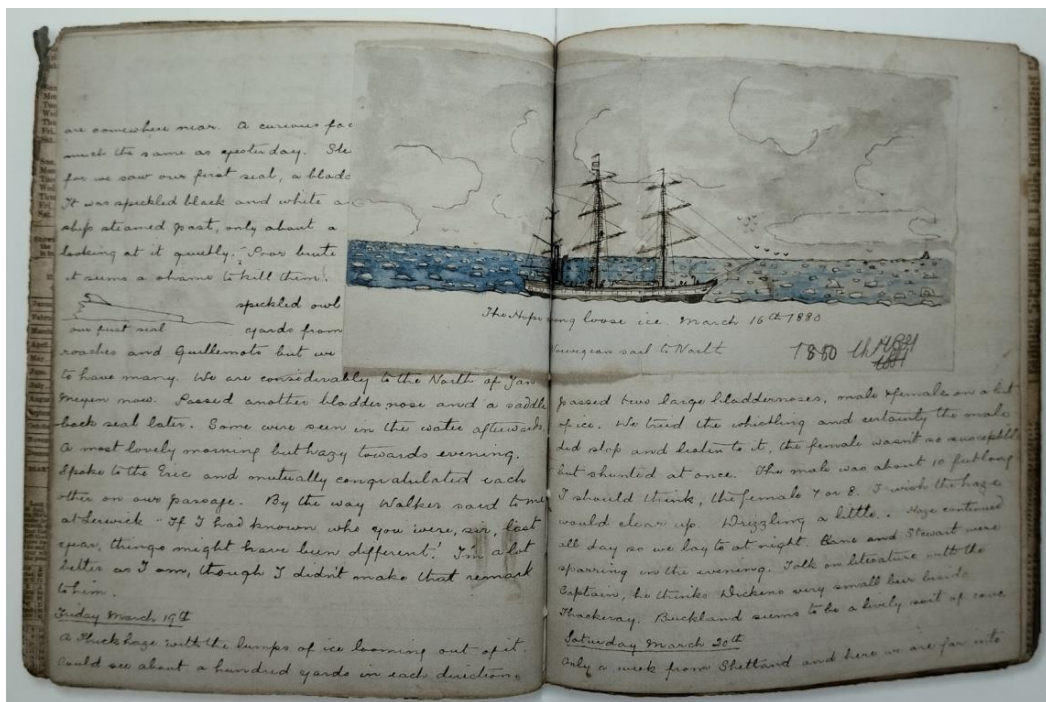 are somewhere near. A curious fac
much the same as yesterday. Ste
for we saw our first seal, a bladd
It was speckled black and white a
ship steamed past, only about a
looking at it quietly. Poor brute
it seems a shame to kill them.
speckled owl
our first seal
yards from
roaches and Guillemots but we
to have many. We are considerably to the North of Jan
Meyen now. Passed another bladdernose and a saddle
back seal later. Some were seen in the water afterwards.
A most lovely morning but hazy towards evening.
Spoke to the Eric and mutually congratulated each
other on our passage. By the way Walker said to me
at Lerwick "If I had known who you were, sir, last
year, things might have been different." I'm a lot
better as I am, though I didn't make that remark
to him.
Friday March 19th
A thick haze with the lumps of ice looming out of it.
Could see about a hundred yards in each direction.
The Hope ong loose ice. March 16th 1880
Norwegian sail to North
1880
passed two large bladdernoses, male & female on a bit
of ice. We tried the whistling and certainly the male
did stop and listen to it, the female wasn't so susceptible
but shunted at once. The male was about 10 feet long
I should think, the female 7 or 8. I wish the haze
would clear up. Drizzling a little. Haze continued
all day so we lay to at night. Cane and Stewart were
sparring in the evening. Talk on literature with the
Captain, he thinks Dickens very small beer beside
Thackeray. Buckland seems to be a lively sort of cove
Saturday March 20th
Only a week from Shetland and here we are far into